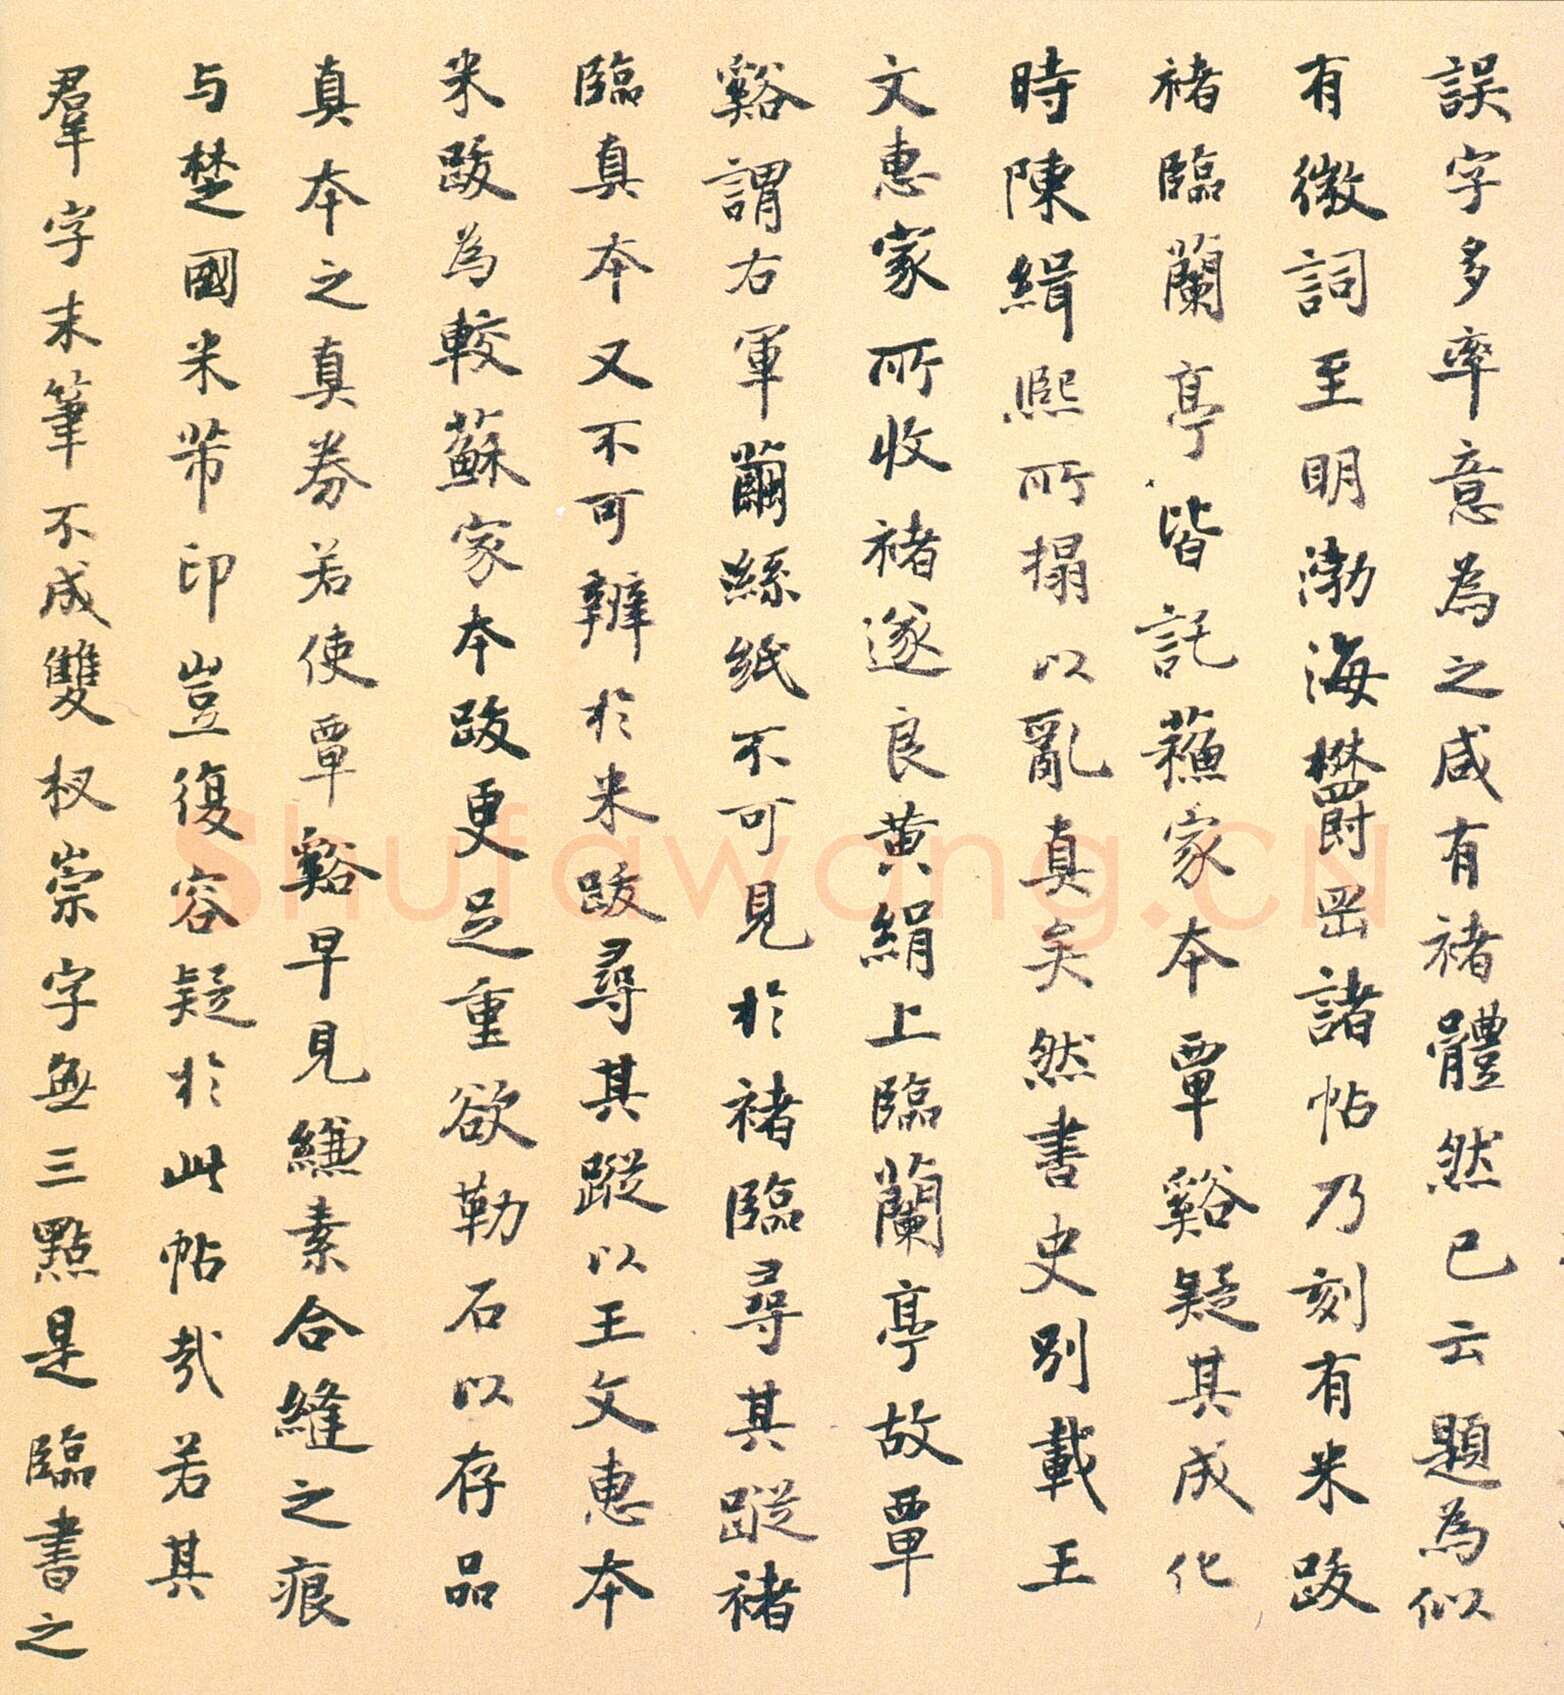 誤字多率意為之咸有褚體然已云題為似
有徵詞至明渤海欝罡諸帖乃刻有米跋
褚臨蘭亭皆託蘓家本覃谿疑其成化
時陳緝熙所搨以亂真矣然書史別載王
文惠家所收褚遂良黃絹上臨蘭亭故覃
谿謂右軍繭絲紙不可見於褚臨尋其蹤褚
臨真本又不可辨於米跋尋其蹤以王文惠本
米跋為較蘇家本跋更足重欲勒石以存品
真本之真券若使覃谿早見縑素合縫之痕
与楚國米芾印豈復容疑於此帖哉若其
羣字末筆不成雙杈崇字無三點是臨書之
Shufawang.CN